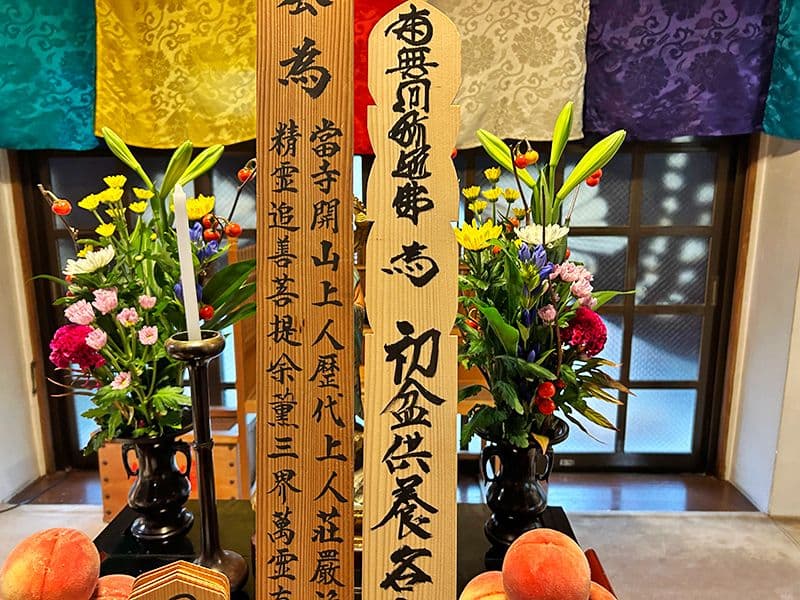 南無阿弥陀佛 為 初盆供養各
為
當寺開山上人歴代上人莊嚴
精霊追善菩提余薫三界萬霊有